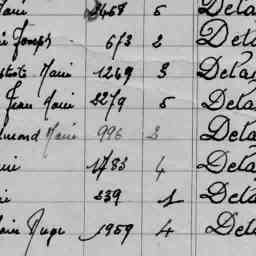 Marie 3458 5 Dela
ie Joseph 673 2 Dela
ptiste Marie 1269 3 Dela
Jean Marie 2279 5 Dela
dmond Marie 996 3 Dela
1783 4 Dela
ie 239 1 Dela
1959 4 Dela